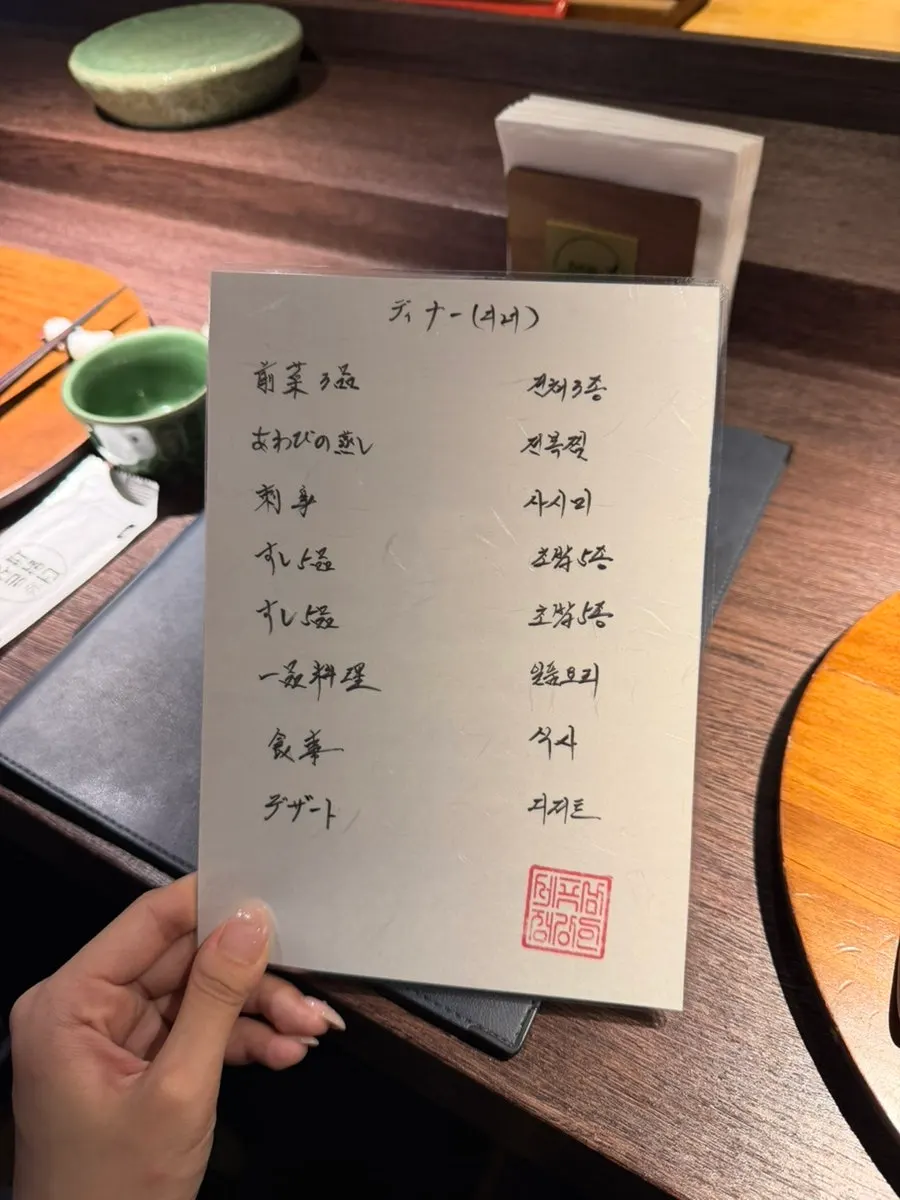 ディナー(디너)
前菜3品 전채3종
あわびの蒸し 전복찜
刺身 사시미
すし5品 초밥5종
すし5品 초밥5종
一品料理 일품요리
食事 식사
デザート 디저트